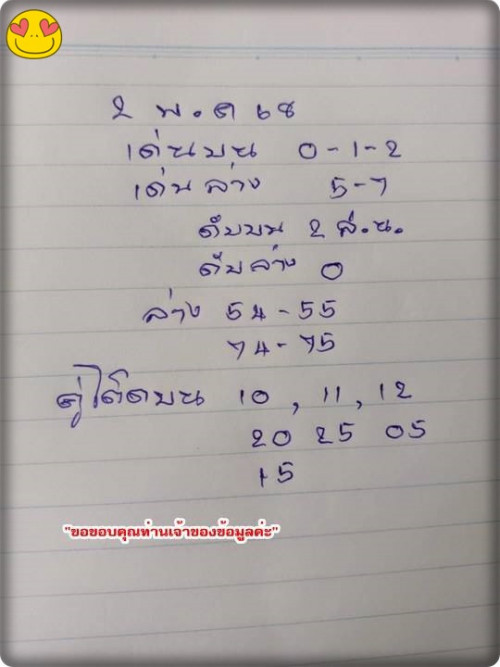 2 พ.ค 68
เด่นบน 0-1-2
เด่นล่าง 5-7
ดับบน 2 ส.น.
ดับล่าง 0
ล่าง 54-55
74-75
คู่โต๊ดบน 10, 11, 12
20 25 05
15
"ขอขอบคุณท่านเจ้าของข้อมูลค่ะ"